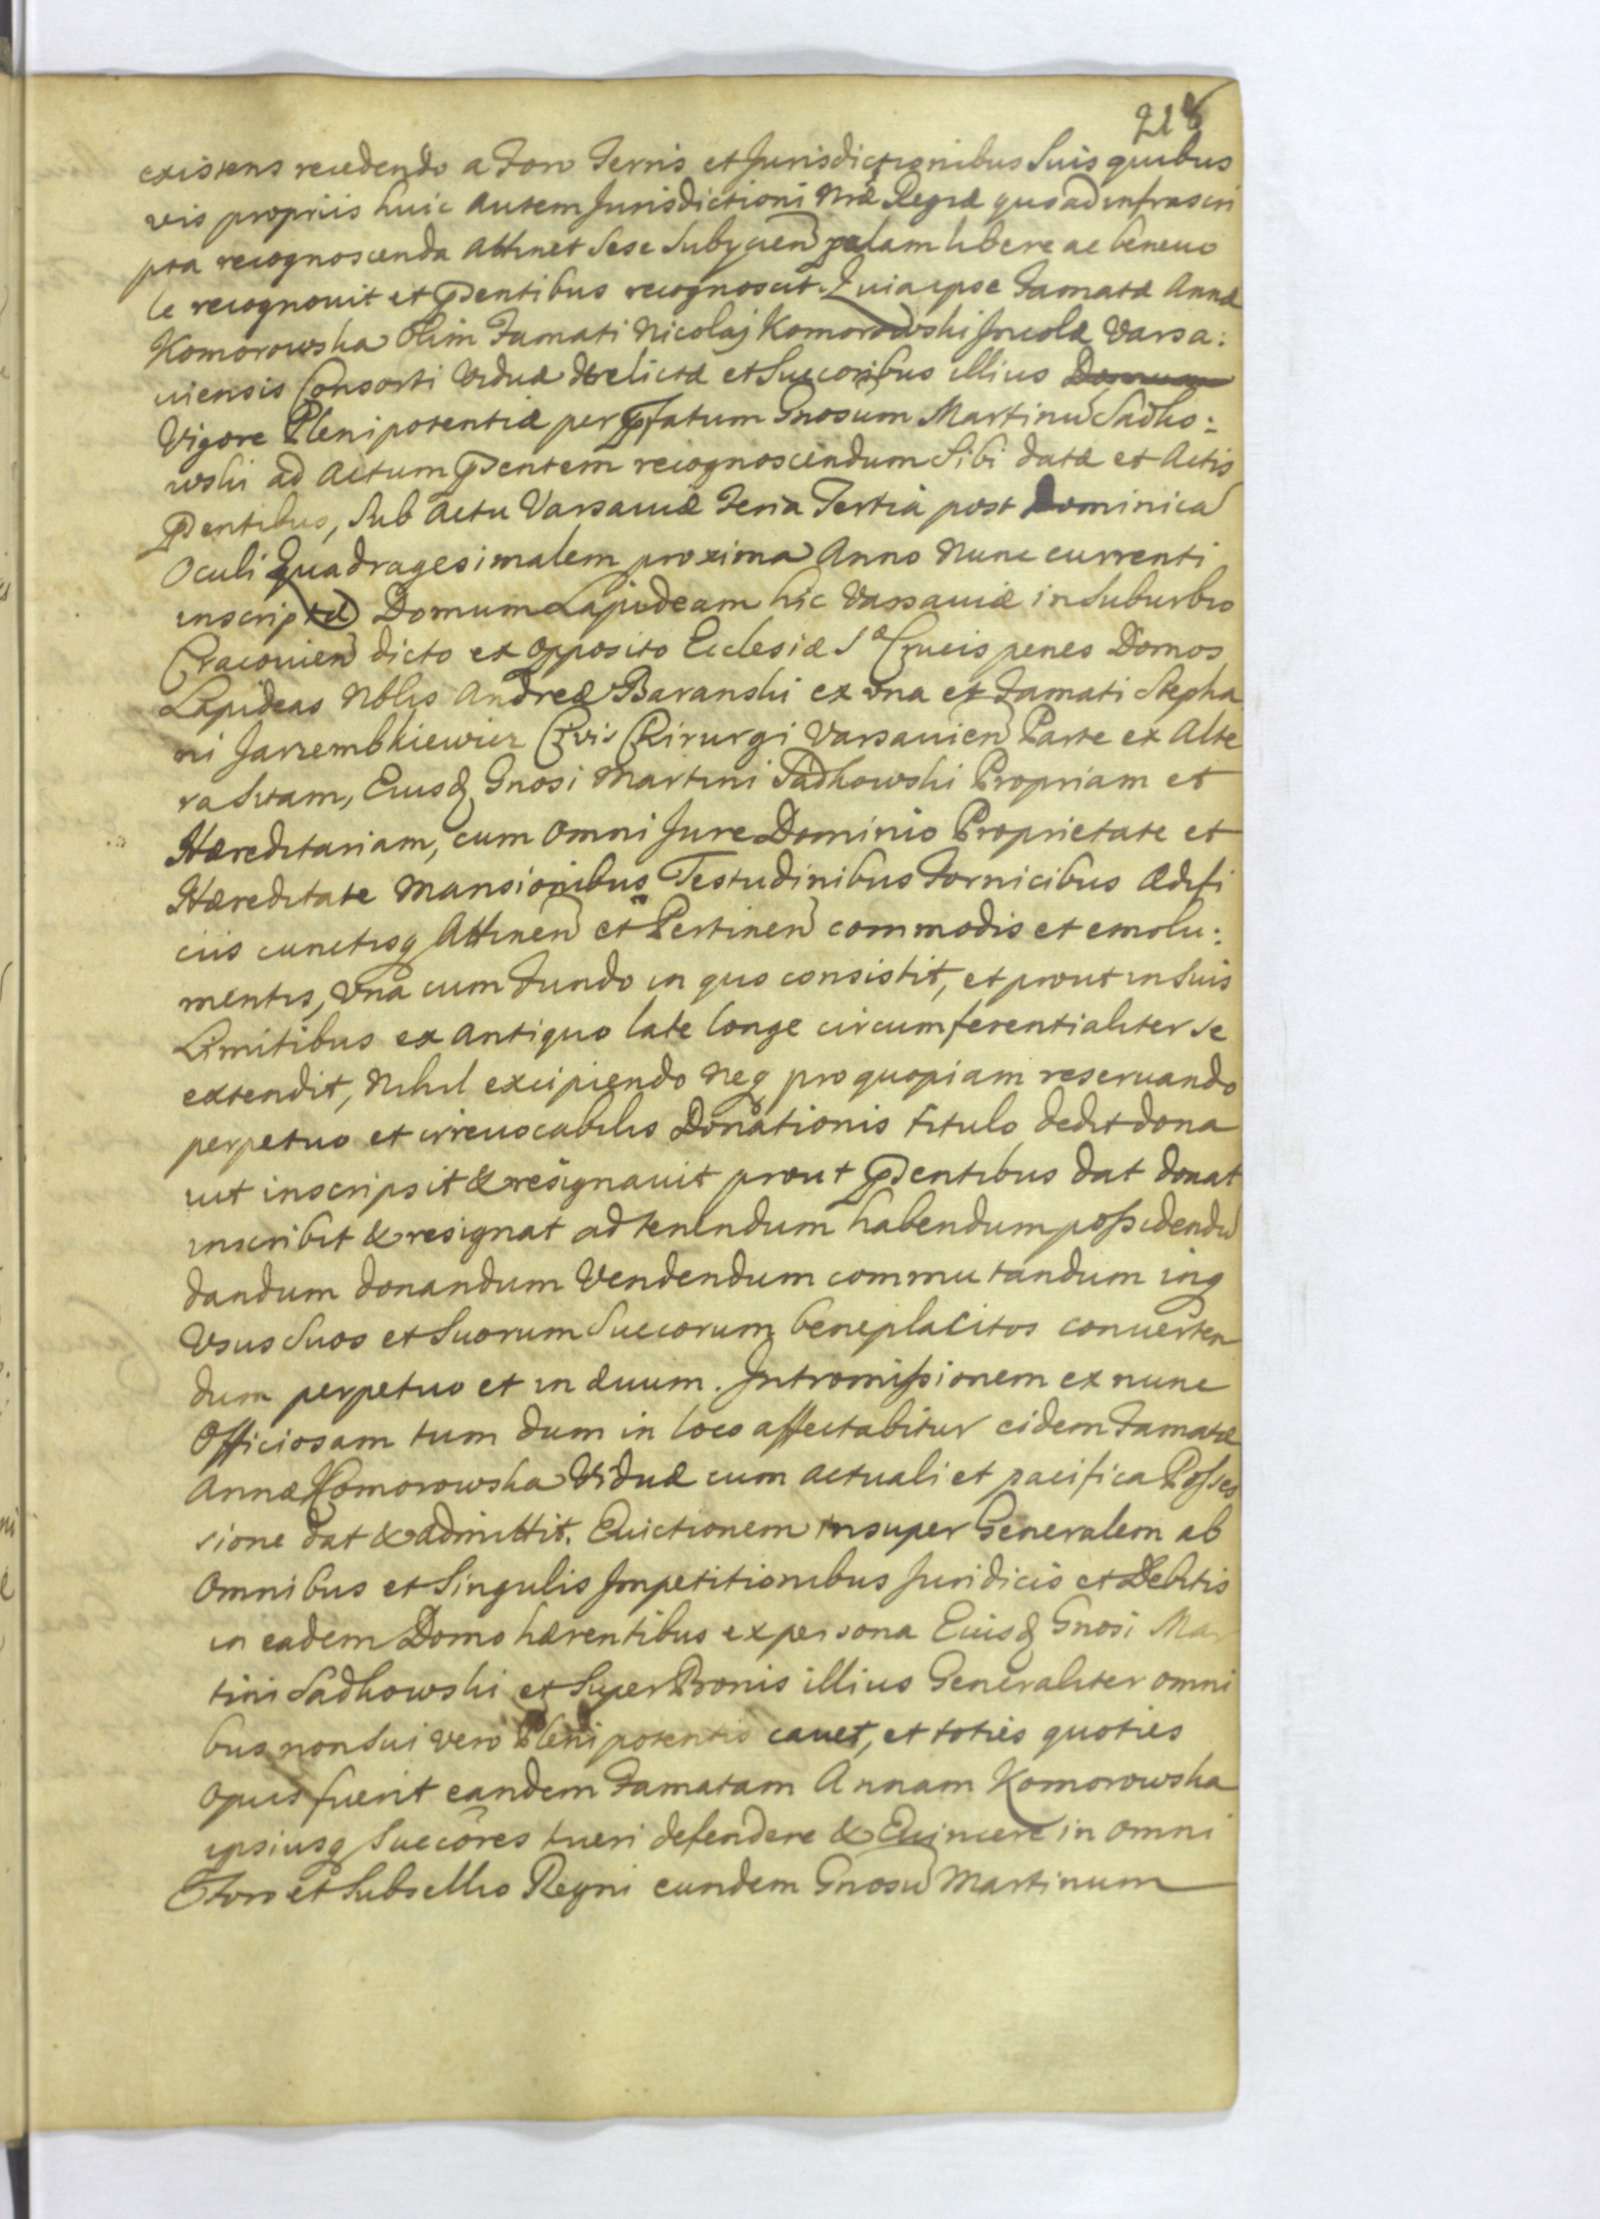 218
existens recedendo a Foro Terris et Jurisdictionibus Suis quibus
vis propriis huic autem Jurisdictioni Nræ Regiæ quoad infrascri
pta recognoscenda attinet Sese Subycien palam libere ac benevo
le recognovit et pntibus recognoscit. Quia ipse Famatæ Annæ
Komorowska Olim Famati Nicolaj Komorowski Incolæ Varsa:
viensis Consorti Viduæ derelictæ et Succoribus illius
Vigore Plenipotentiæ per pfatum Gnosum Martinu Sadko:
wski ad Actum pntem recognoscendum Sibi datæ et Actis
pntibus, Sub Actu Varsaviæ Feria Tertia post Dominica
Oculi Quadragesimalem proxima Anno Nunc currenti
inscriptæ Domum Lapideam hic Varsaviæ in Suburbio
Cracovien dicto ex opposito Ecclesiæ Sæ Crucis penes Domos
Lapideas Nblis Andreæ Baranski ex una et Famati Stepha
ni Jarzembkiewicz Civis Chirurgi Varsavien Parte ex Alte
ra Sitam, Eiusd Gnosi Martini Sadkowski Propriam et
Hæreditariam, cum Omni Jure Dominio Proprietate et
Hæreditate Mansionibus Testudinibus Fornicibus Ædifi
ciis cunctisq Attinen et Pertinen commodis et emolu:
mentis, Vna cum Fundo in quo consistit, et prout in Suis
Limitibus ex antiquo late longe circumferentialiter se
extendit, Nihil excipiendo Neq pro quopiam reservando
perpetuo et irrevocabilis Donationis titulo dedit dona
uit inscripsit & resignavit prout pntibus dat donat
inscribit & resignat ad tenendum habendum possidendu
dandum donandum Vendendum commutandum inq
Usus Suos et Suorum Succorum beneplacitos converten
dum perpetuo et in ævum. Intromissionem ex nunc
Officiosam tum dum in loco affectabitur eidem Famatæ
Annæ Komorowska Viduæ cum actuali et pacifica Posses
sione dat & admittit. Evictionem insuper Generalem ab
Omnibus et Singulis Impetitionibus Juridicis et Debitis
in eadem Domo hærentibus ex persona Eiusd Gnosi Mar
tini Sadkowski et Super Bonis illius Generaliter omni
bus non Sui vero Plenipotentis cavet, et toties quoties
Opus fuerit eandem Famatam Annam Komorowska
ipsiusq Succores tueri defendere & Evincere in omni
Foro et Subsellio Regni eundem Gnosu Martinum